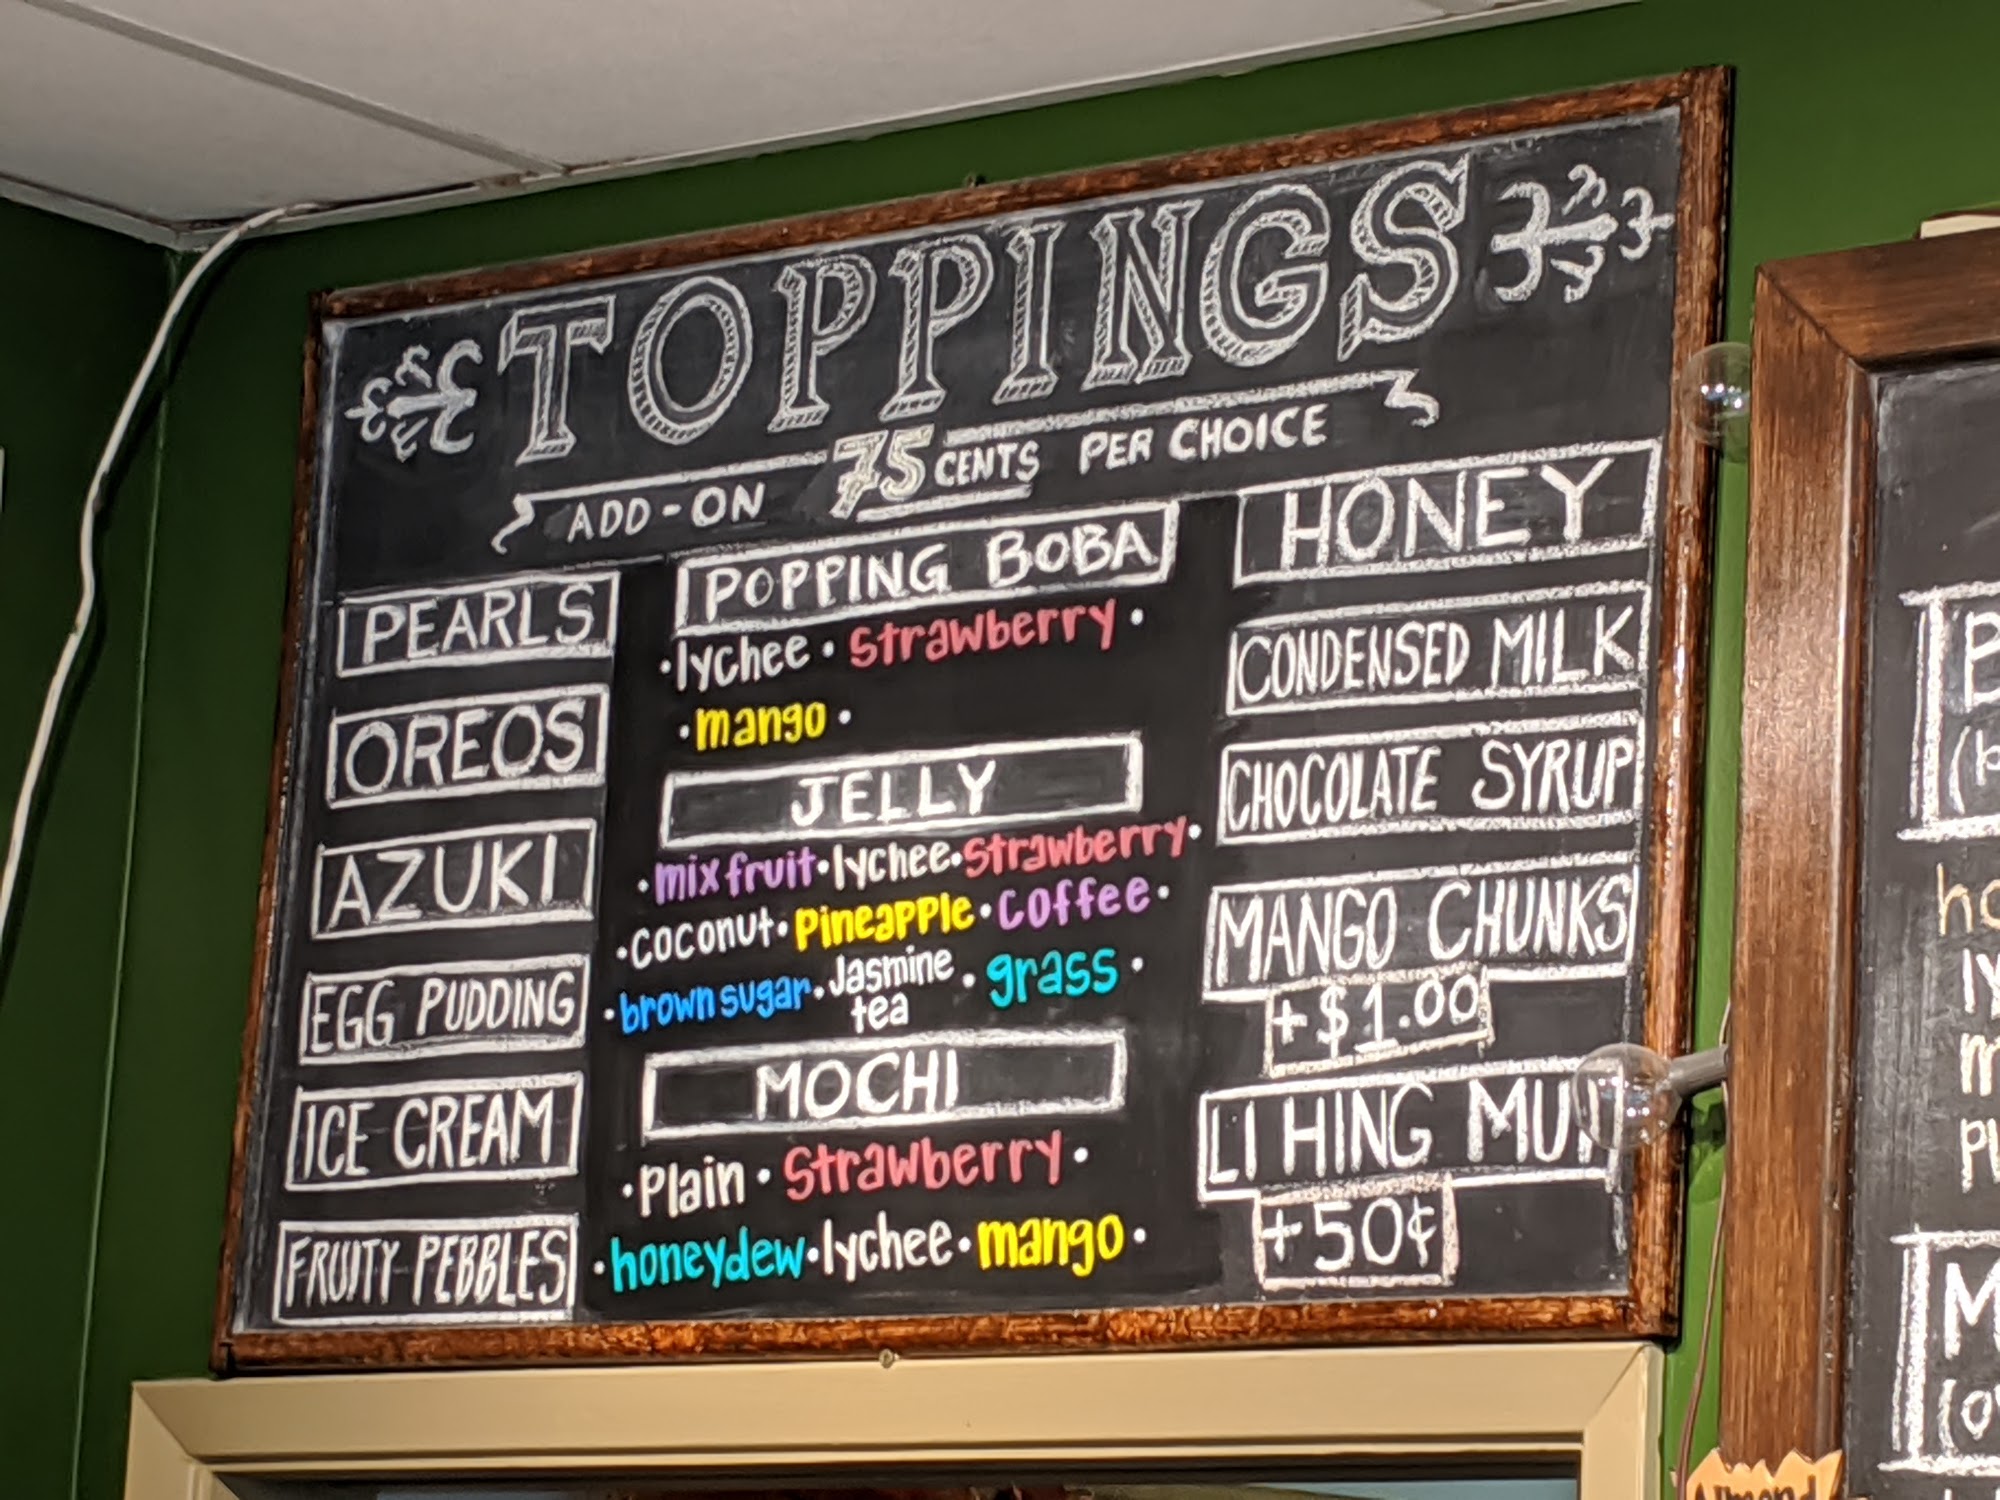 TOPPINGS
ADD-ON 75 CENTS PER CHOICE
PEARLS
OREOS
AZUKI
EGG PUDDING
ICE CREAM
FRUITY PEBBLES
POPPING BOBA
•lychee • Strawberry •
• mango •
JELLY
• mix fruit • lychee • Strawberry •
• coconut • Pineapple • coffee •
• brown sugar • Jasmine tea • grass •
MOCHI
• Plain • Strawberry •
• honeydew • lychee • mango •
HONEY
CONDENSED MILK
CHOCOLATE SYRUP
MANGO CHUNKS
+$1.00
LI HING MUI
+50¢
Almond